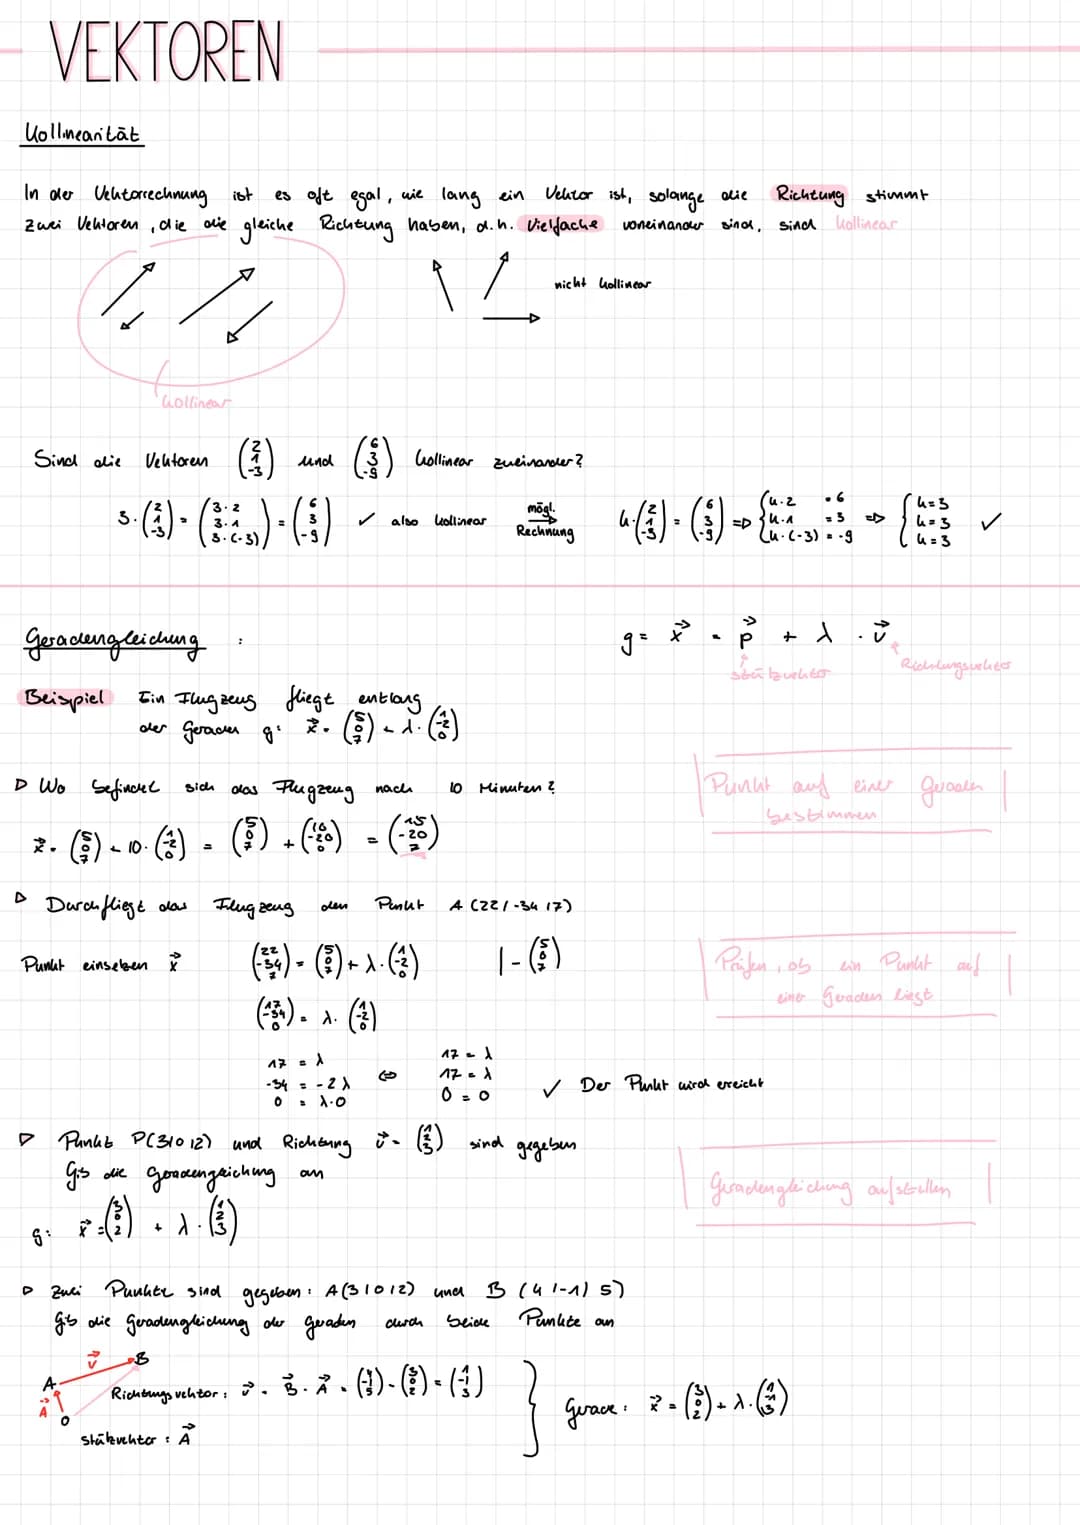 VEKTOREN
Kollinearität
In der Vektorrechnung ist es oft egal, wie lang ein Vektor ist, solange die Richtung stimmt
Zwei Vektoren, die die gleiche Richtung haben, d.h. Vielfache voneinander sind, sind kollinear
nicht kollinear
kollinear
Sind die Vektoren (2 1 -3) und (6 3 -9) kollinear zueinander?
3·(2 1 -3) = (3·2 3·1 3·(-3)) = (6 3 -9) ✓ also kollinear mögl. Rechnung k·(2 1 -3) = (6 3 -9) => {k·2 = 6 k·1 = 3 k·(-3) = -9 => {k=3 k=3 k=3 ✓
Geradengleichung : g= x⃗ = p⃗ + λ · v⃗
Stützvektor Richtungsvektor
Beispiel Ein Flugzeug fliegt entlang
der Geraden g: x⃗ = (5 0 7) + λ·(1 -2 0)
▷ Wo befindet sich das Flugzeug nach 10 Minuten?
Punkt auf einer Geraden
bestimmen
x⃗ = (5 0 7) + 10·(1 -2 0) = (5 0 7) + (10 -20 0) = (15 -20 7)
▷ Durchfliegt das Flugzeug den Punkt A (22/-34 17)
Punkt einsetzen x⃗ (22 -34 7) = (5 0 7) + λ·(1 -2 0) |-(5 0 7)
Prüfen, ob ein Punkt auf
einer Geraden liegt
(17 -34 0) = λ·(1 -2 0)
17 = λ 17 = λ
-34 = -2λ ⇔ 17 = λ ✓ Der Punkt wird erreicht
0 = λ·0 0 = 0
▷ Punkt P(3/0/2) und Richtung v⃗ = (1 2 3) sind gegeben
Gib die Geradengleichung an
Geradengleichung aufstellen
g: x⃗ = (3 0 2) + λ·(1 2 3)
▷ Zwei Punkte sind gegeben: A(3/0/2) und B (4/-1/5)
Gib die Geradengleichung der Geraden durch beide Punkte an
v⃗ B
A
A⃗
0
Richtungsvektor: v⃗ = B⃗ - A⃗ = (4 -1 5) - (3 0 2) = (1 -1 3)
Stützvektor: A⃗
Gerade: x⃗ = (3 0 2) + λ·(1 -1 3)